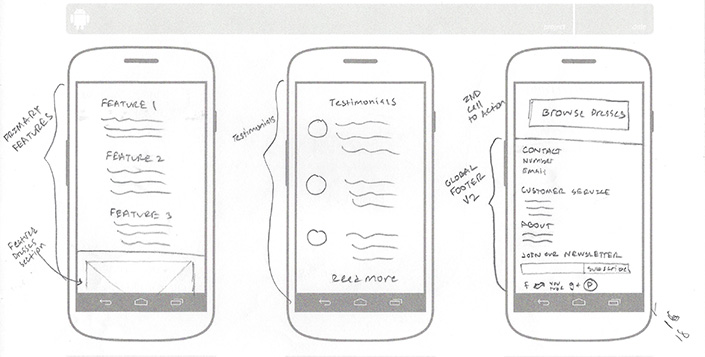 PRIMARY
FEATURES
FEATURE 1
FEATURE 2
FEATURE 3
Feature
Dresses
section
Testimonials
Testimonials
Read more
2ND
Call
to Action
BROWSE DRESSES
GLOBAL
FOOTER
V2
CONTACT
NUMBER
EMAIL
CUSTOMER SERVICE
ABOUT
JOIN OUR NEWSLETTER
SUBSCRIBE
f You Tube g+ P
16
18